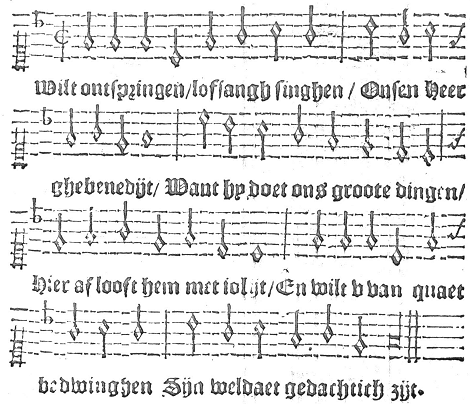 Wilt ontspringen/lofsangh singhen / Onsen Heer
ghebenedijt/ Want hy doet ons groote dingen/
Hier af looft hem met iolijt/En wilt v van quaet
bedwinghen Sijn weldaet gedachtich zijt.